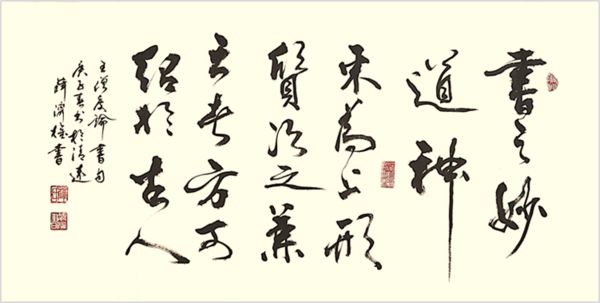 書之妙
道神
采為上形
質次之兼
之者方可
紹於古人
王僧虔論書句
庚子春書於清遠
書